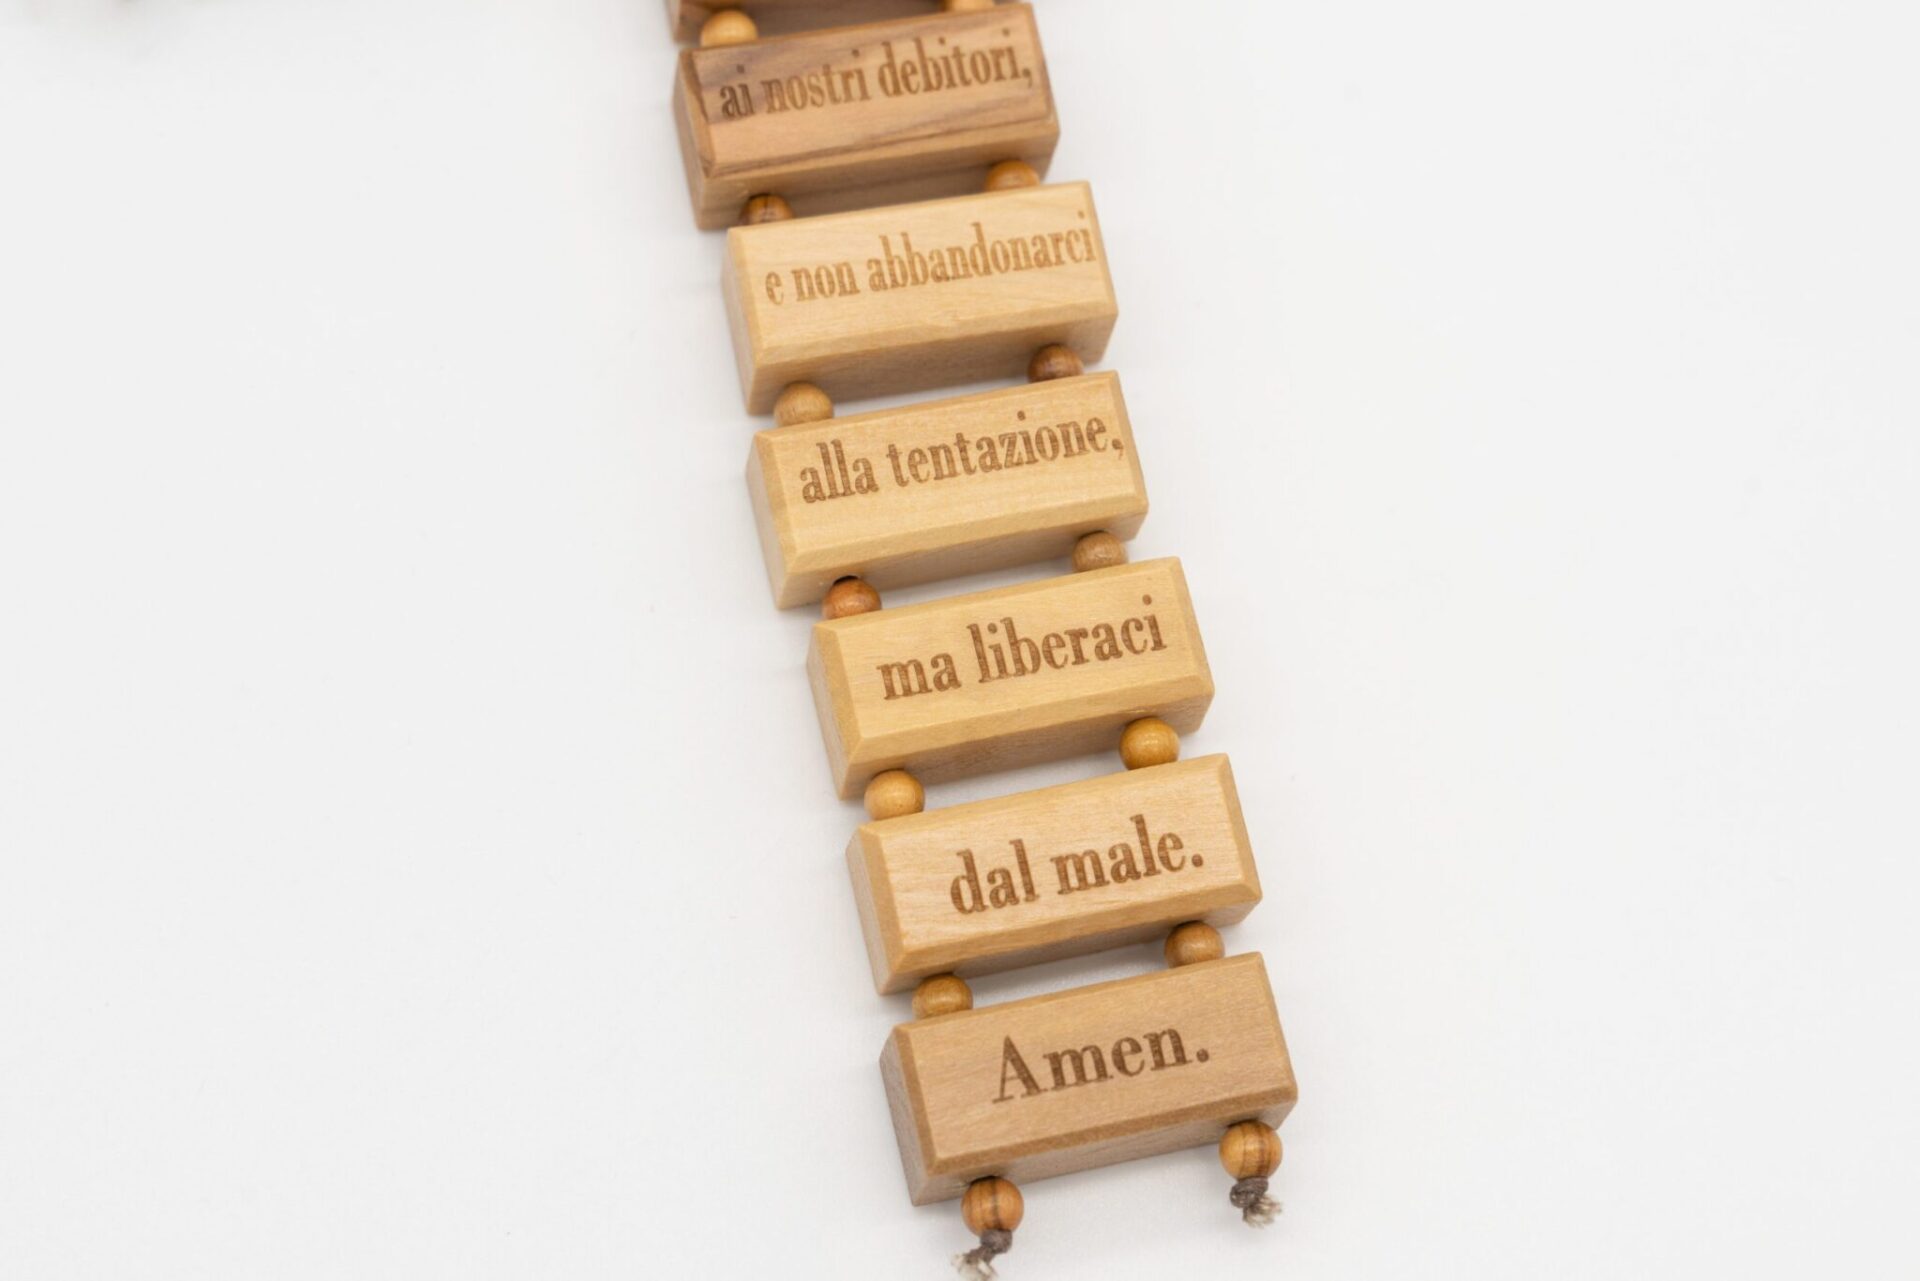 ai nostri debitori,
e non abbandonarci
alla tentazione,
ma liberaci
dal male.
Amen.